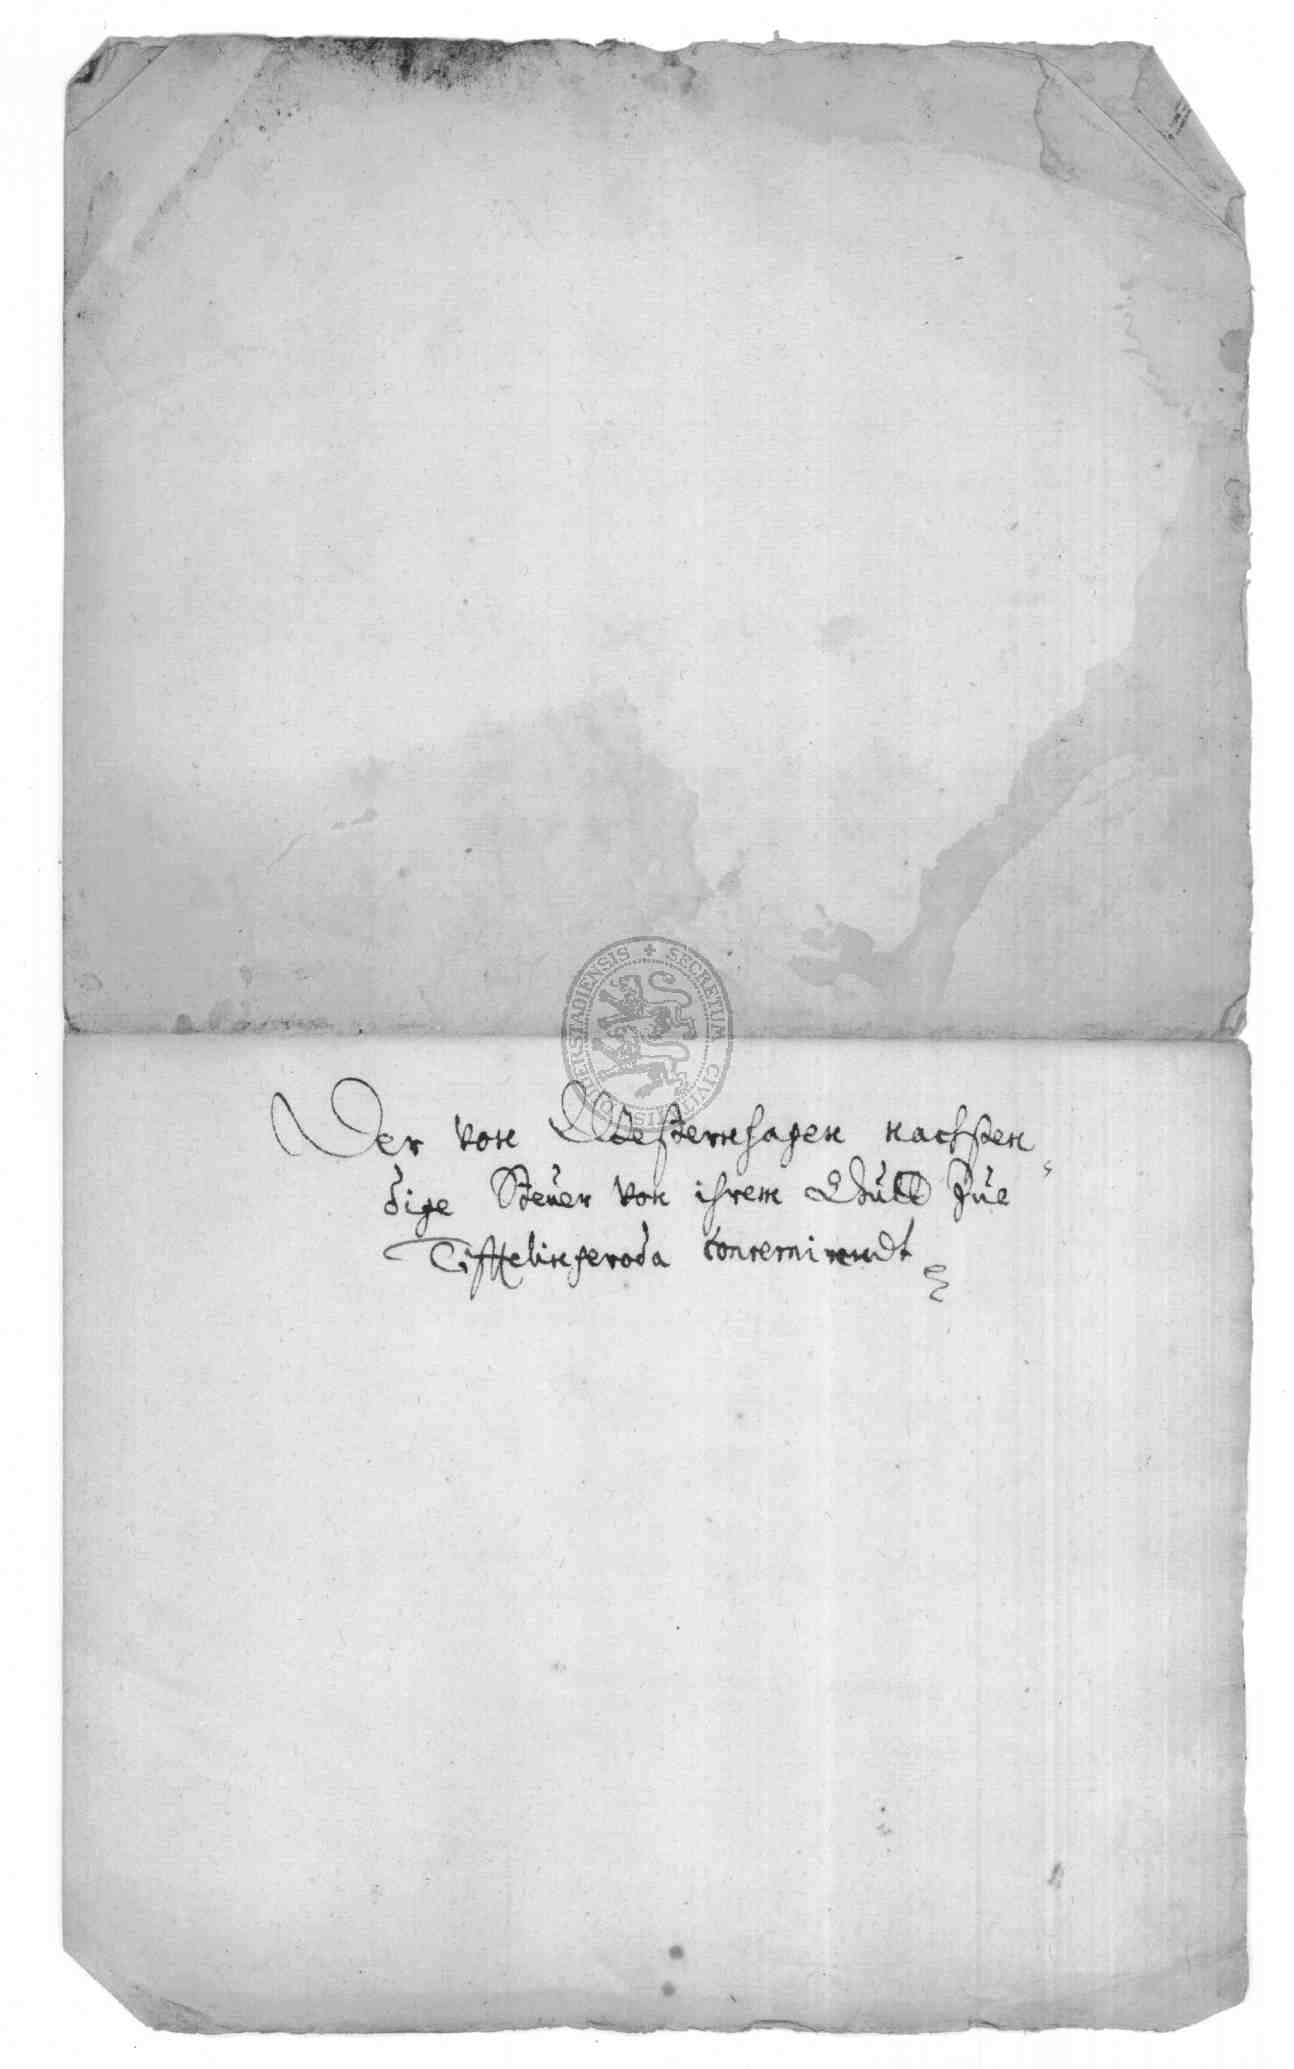 SECRETUM CIVITATIS DUDERSTADIENSIS
Der von Westernhagen nachsten
dige Steuer von ihrem Guett Zue
Tistelingeroda concernirendt